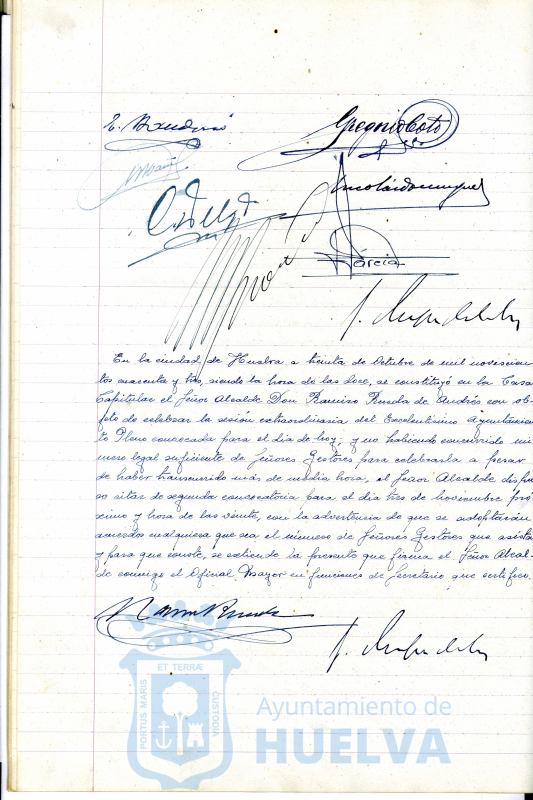 E.
Gregorio Coto
O. Delgado
García
En la ciudad de Huelva a treinta de Octubre de mil novecien-
tos cuarenta y tres, siendo la hora de las doce, se constituyó en la Casa
Capitular el Señor Alcalde Don Ramiro Rueda de Andrés con ob-
jeto de celebrar la sesión extraordinaria del Excelentísimo Ayuntamien-
to Pleno convocada para el día de hoy; y no habiendo concurrido nú-
mero legal suficiente de Señores Gestores para celebrarla a pesar
de haber transcurrido más de media hora, el Señor Alcalde dispu-
so citar de segunda convocatoria para el día tres de noviembre pró-
ximo y hora de las veinte, con la advertencia de que se adoptarán
acuerdos cualquiera que sea el número de Señores Gestores que asistan
y para que conste, se extiende la presente que firma el Señor Alcal-
de conmigo el Oficial Mayor en funciones de Secretario que certifico.
Ramiro Rueda
PORTUS MARIS ET TERRÆ CUSTODIA
Ayuntamiento de
HUELVA